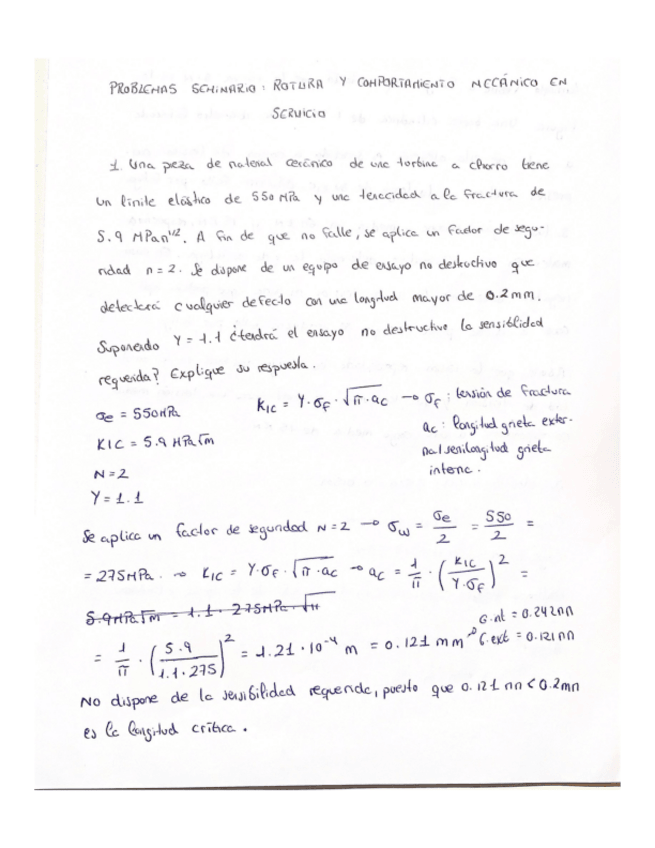 PROBLEMAS SEMINARIO: ROTURA Y COMPORTAMIENTO MECÁNICO EN
SERVICIO
1. Una pieza de material cerámico de una turbina a chorro tiene
un límite elástico de 550 MPa y una tenacidad a la fractura de
5.9 MPam^1/2. A fin de que no falle, se aplica un factor de segu-
ridad n = 2. Se dispone de un equipo de ensayo no destructivo que
detectará cualquier defecto con una longitud mayor de 0.2 mm.
Suponiendo Y = 1.1 ¿tendrá el ensayo no destructivo la sensiblidad
requerida? Explique su respuesta.
σe = 550 MPa
KIC = 5.9 MPa√m
N = 2
Y = 1.1
KIC = Y · σF · √π · ac → σF : tensión de fractura
ac : longitud grieta exter-
na/semilongitud grieta
interna.
Se aplica un factor de seguridad N = 2 → σw = σe/2 = 550/2 =
= 275 MPa. → KIC = Y·σF · √π · ac → ac = 1/π · (KIC/Y·σF)^2 =
5.9 MPa√m = 1.1 · 275 MPa · √π
= 1/π · (5.9/1.1·275)^2 = 1.21 · 10^-4 m = 0.121 mm
G.int = 0.242 mm
G.ext = 0.121 mm
No dispone de la sensibilidad requerida, puesto que 0.121 mm < 0.2mm
es la longitud crítica.